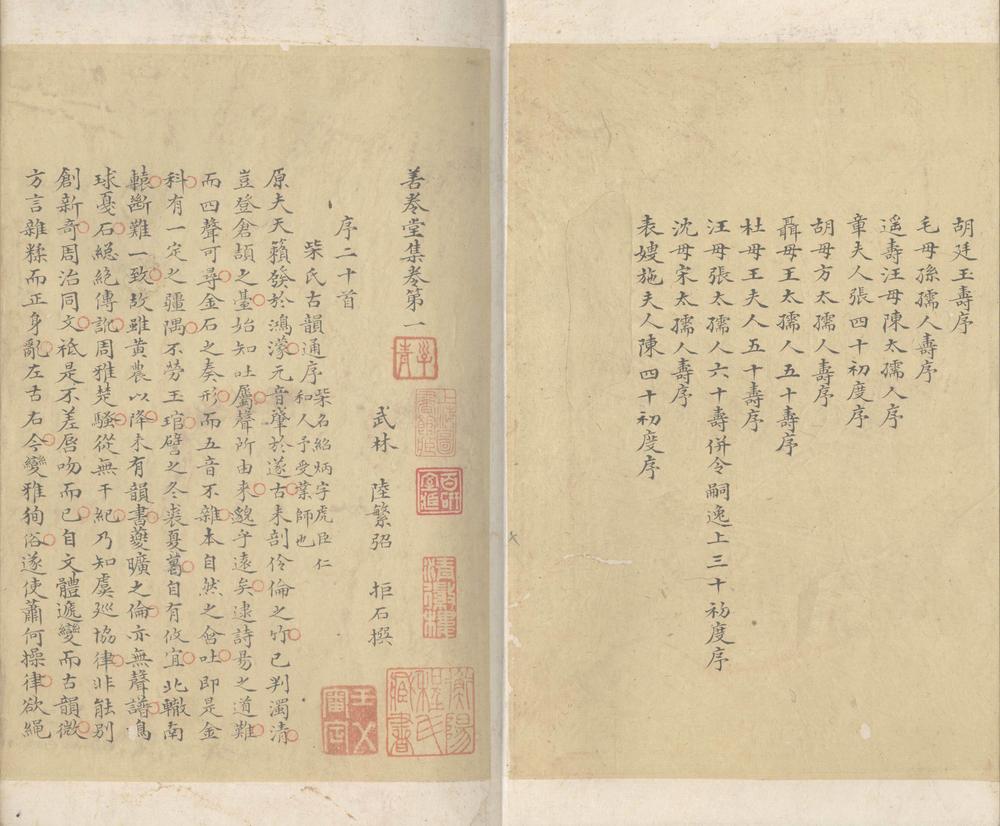 胡廷玉壽序
毛母孫孺人壽序
遥壽汪母陳太孺人序
章夫人張四十初度序
胡母方太孺人壽序
聶母王太孺人五十壽序
杜母王夫人五十壽序
汪母張太孺人六十壽併令嗣逸上三十初度序
沈母宋太孺人壽序
表嫂施夫人陳四十初度序
善卷堂集卷第一
武林 陸繁弨 拒石撰
序二十首
柴氏古韻通序 柴名紹炳字虎臣仁和人予受業師也
原夫天籟發於鴻濛元音肇於遂古未剖伶倫之竹已判濁清
豈登倉頡之臺始知吐屬聲所由來邈乎遠矣逮詩昜之道難
而四聲可尋金石之奏形而五音不雜本自然之會吐即是金
科有一定之疆隅不勞玉琯譬之冬裘夏葛自有攸宜北轍南
轅斷難一致故雖黄農以降未有韻書夔曠之倫亦無聲譜鳥
球戛石緫絶傳訛周雅楚騷從無干紀乃知虞廵協律非能别
創新奇周治同文祗是不差唇吻而已自文體遞變而古韻微
方言雜糅而正身亂左古右今變雅狥俗遂使蕭何操律欲繩